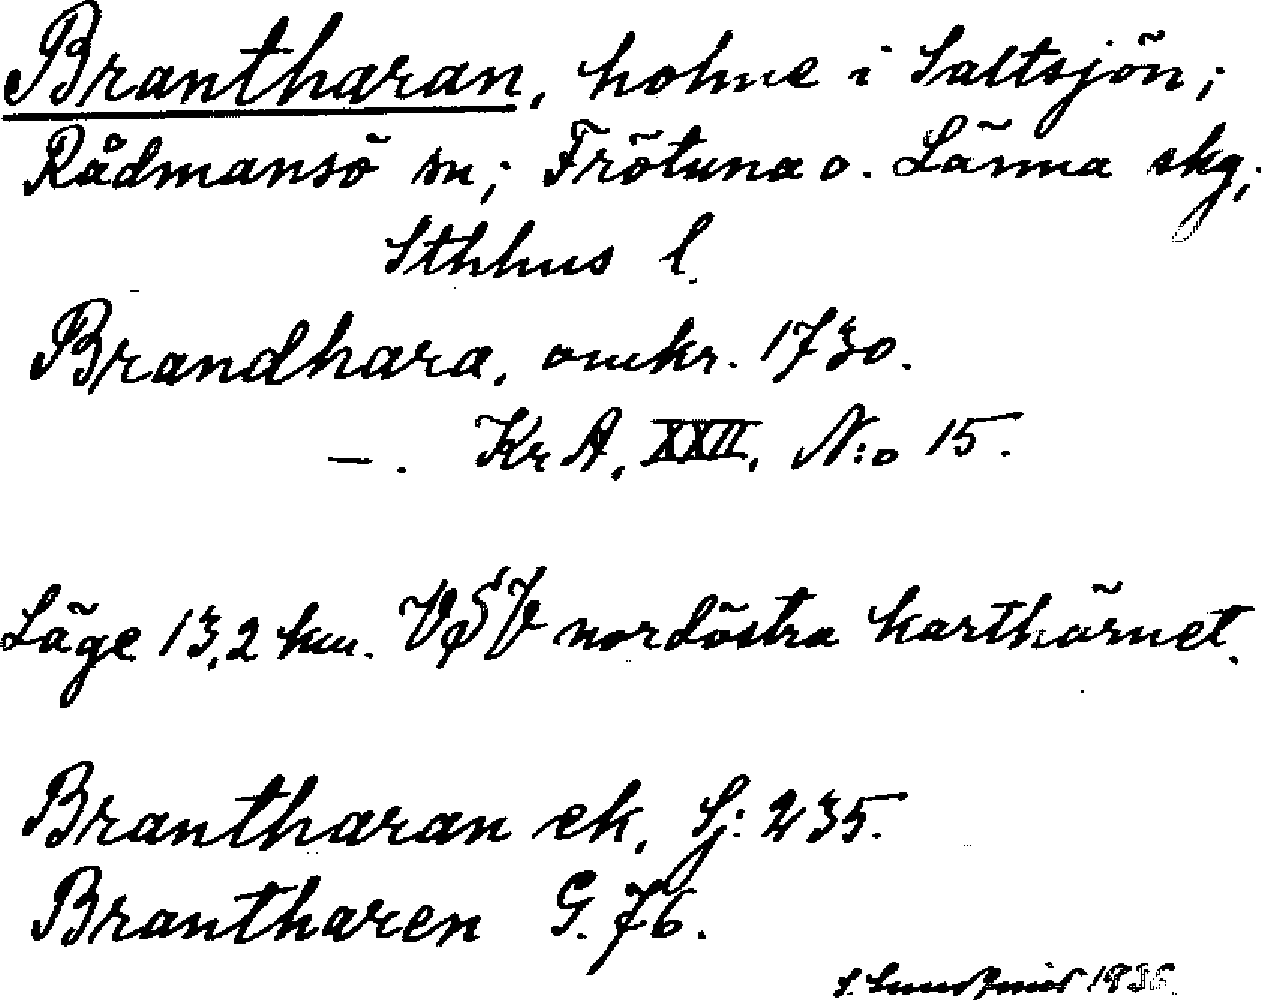 Brantharan, holme i Saltsjön;
Rådmansö sn; Frötuna o. Länna skg;
Sthlms l.
Brandhara, omkr. 1730.
—. KrA, XXII, N:o 15.
Läge 13,2 km. VSV nordöstra karthörnet.
Brantharan ek, Sj: 235.
Brantharen G. 76.
S. 1936.